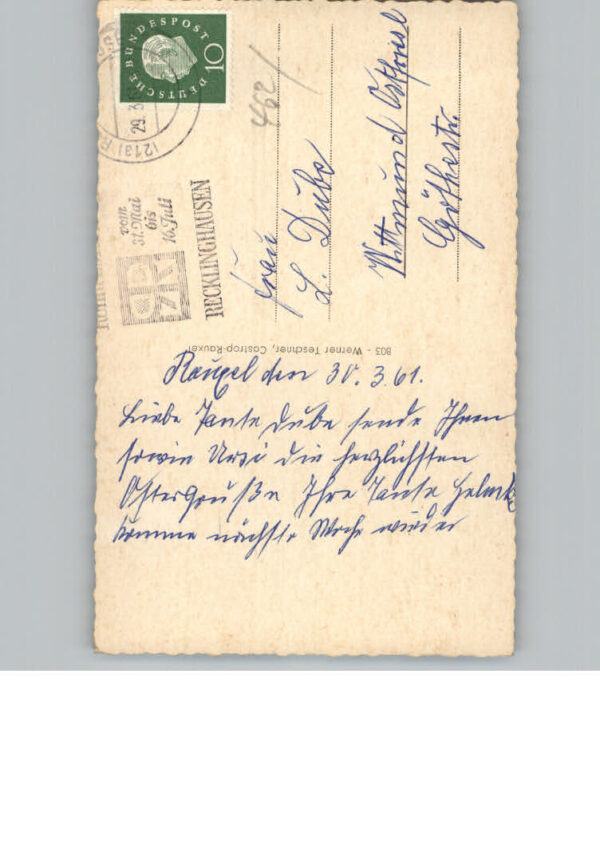 DEUTSCHE BUNDESPOST
10
29.3
(21a)
vom
31. Mai
bis
16. Juli
RECKLINGHAUSEN
Frau
L. Dube
Wittmund Ostfriesl
Göthestr.
803 - Werner Teschner, Castrop-Rauxel
Rauxel den 30.3.61.
Liebe Tante Dube sende Ihnen
sowie Ursi die herzlichsten
Ostergrüße Ihre Tante
komme nächste Woche wieder